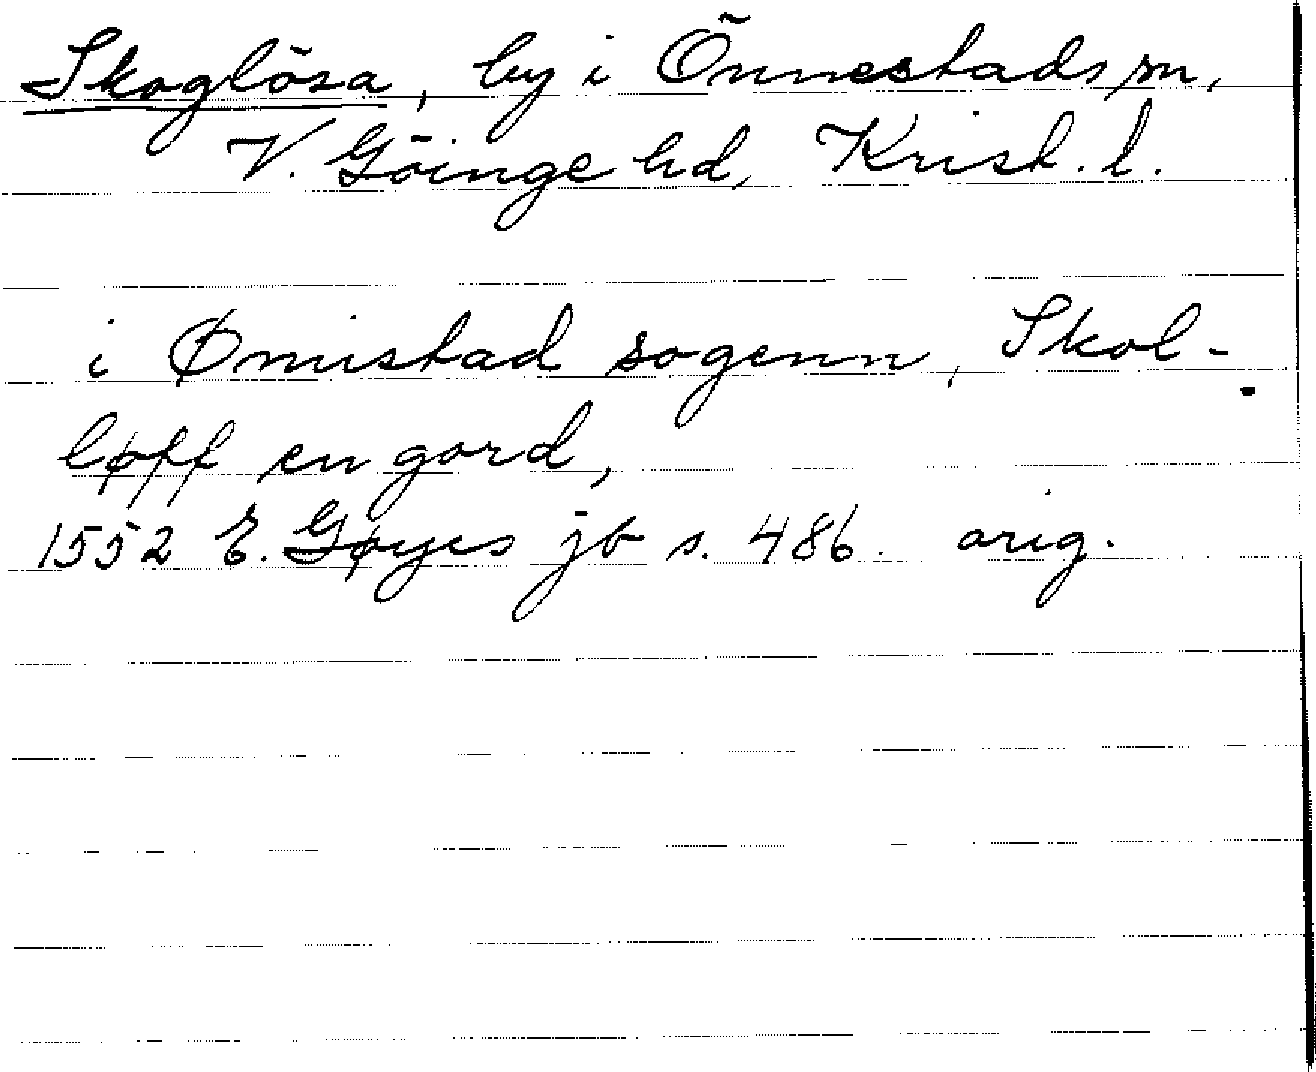 Skoglösa, by i Önnestads sn,
V. Göinge hd, Krist. l.
i Ønnistad sogenn, Skol-
løff en gord,
1552 E. Gøyes jb s. 486. orig.